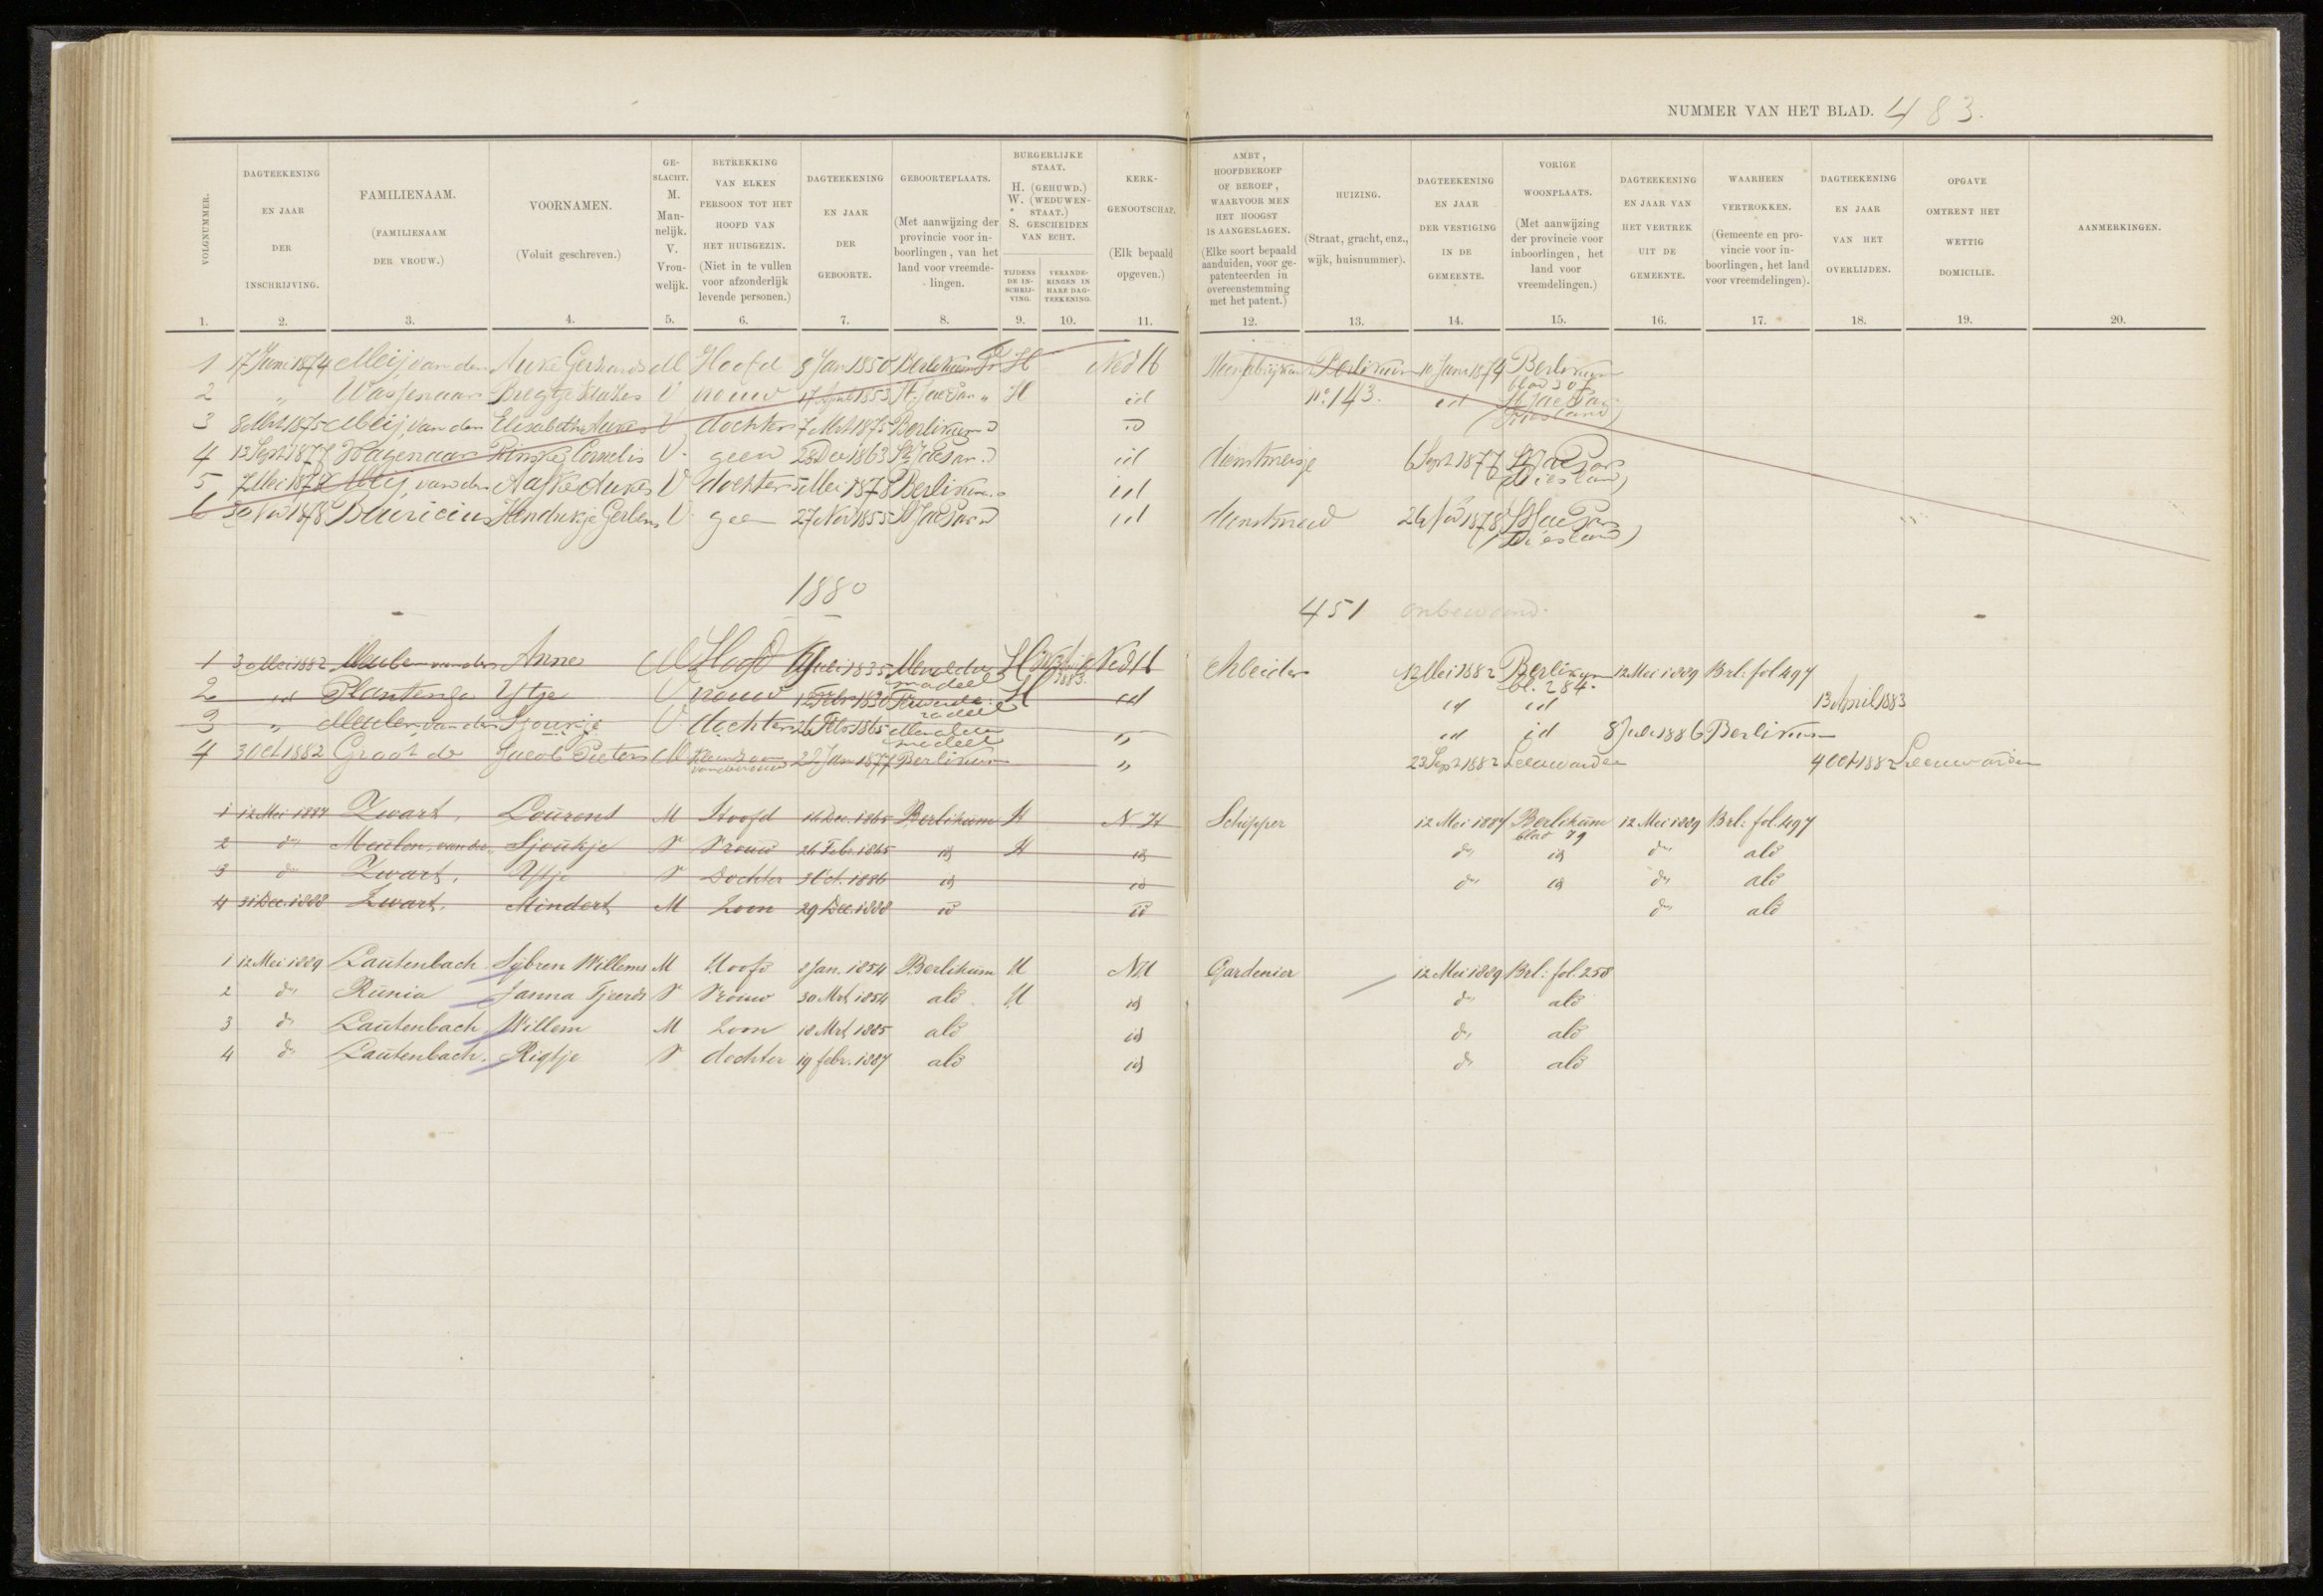 NUMMER VAN HET BLAD. 483.
VOLGNUMMER. 1.
DAGTEEKENING EN JAAR DER INSCHRIJVING. 2.
FAMILIENAAM. (FAMILIENAAM DER VROUW.) 3.
VOORNAMEN. (Voluit geschreven.) 4.
GE-SLACHT. M. Man-nelijk. V. Vrou-welijk. 5.
BETREKKING VAN ELKEN PERSOON TOT HET HOOFD VAN HET HUISGEZIN. (Niet in te vullen voor afzonderlijk levende personen.) 6.
DAGTEEKENING EN JAAR DER GEBOORTE. 7.
GEBOORTEPLAATS. (Met aanwijzing der provincie voor in-boorlingen, van het land voor vreemde-lingen. 8.
BURGERLIJKE STAAT. H. (GEHUWD.) W. (WEDUWEN-STAAT.) S. GESCHEIDEN VAN ECHT.
TIJDENS DE IN-SCHRIJ-VING. 9.
VERANDE-RINGEN IN HARE DAG-TEEKENING. 10.
KERK-GENOOTSCHAP. (Elk bepaald opgeven.) 11.
AMBT, HOOFDBEROEP OF BEROEP, WAARVOOR MEN HET HOOGST IS AANGESLAGEN. (Elke soort bepaald aanduiden, voor ge-patenteerden in overeenstemming met het patent.) 12.
HUIZING. (Straat, gracht, enz., wijk, huisnummer). 13.
DAGTEEKENING EN JAAR DER VESTIGING IN DE GEMEENTE. 14.
VORIGE WOONPLAATS. (Met aanwijzing der provincie voor inboorlingen, het land voor vreemdelingen.) 15.
DAGTEEKENING EN JAAR VAN HET VERTREK UIT DE GEMEENTE. 16.
WAARHEEN VERTROKKEN. (Gemeente en pro-vincie voor in-boorlingen, het land voor vreemdelingen). 17.
DAGTEEKENING EN JAAR VAN HET OVERLIJDEN. 18.
OPGAVE OMTRENT HET WETTIG DOMICILIE. 19.
AANMERKINGEN. 20.
1 17 Juni 1874 Meij van der Auke Gerhards M Hoofd 8 Jan 1850 Berlikum H Ned H Berlikum 10 Juni 1874 Berlikum
2 " Wassenaar V vrouw 17 April 1853 St Jac Par " H id No. 143. id St Jac Par (Friesland)
3 8 Mrt 1875 Meij, van der Elisabeth Aukes V dochter 7 Mrt 1875 Berlikum
4 13 Sept 1877 Wagenaar Rinske Cornelis V. geen 28 Dec 1863 St Jac Par id dienstmeisje 6 Sept 1877 St Jac Par (Friesland)
5 7 Mei 1878 Meij, van der Aafke Aukes V dochter 5 Mei 1878 Berlikum id
6 30 Nov 1878 Mauricius Hendrikje Gerbens V. geen 27 Nov 1855 St Jac Par id dienstmeid 26 Nov 1878 St Jac Par (Friesland)
1880
451 onbewoond.
1 3 Mei 1882 Meulen van der Anne M Hoofd Juli 1835 Menaldumadeel H 1883. Ned H Arbeider 12 Mei 1882 Berlikum bl. 284. 12 Mei 1889 Brl: fol 497
2 id Plantenga Ytje V vrouw 12 Febr 1830 H id id id 13 April 1883
3 " Meulen, van der Sjoukje V. dochter 26 Febr 1865 Menaldumadeel " id id 8 Juli 1886 Berlikum
4 3 Oct 1882 Groot de Jacob Pieters M Kleinzoon van de vrouw 22 Jan 1877 Berlikum " 23 Sept 1882 Leeuwarden 4 Oct 1882 Leeuwarden
1 12 Mei 1887 Zwart, Lourens M Hoofd 16 Dec. 1865 Berlikum H N. H Schipper 12 Mei 1887 Berlikum blad 79 12 Mei 1889 Brl: fol. 497
2 do Meulen, van der Sjoukje V Vrouw 26 Febr. 1865 id H id do id do alo
3 do Zwart, Ytje V Dochter 3 Oct. 1886 id id do id do alo
4 31 Dec. 1888 Zwart, Mindert M Zoon 29 Dec. 1888 id id do alo
1 12 Mei 1889 Lautenbach Sijbren Willems M Hoofd 2 Jan. 1854 Berlikum H N.H Gardenier 12 Mei 1889 Brl: fol. 258
2 do Runia Janna Tjeerds V Vrouw 30 Mrt 1854 alo H id do alo
3 do Lautenbach Willem M Zoon 18 Mrt 1885 alo id do alo
4 do Lautenbach. Rigtje V dochter 19 febr. 1887 alo id do alo